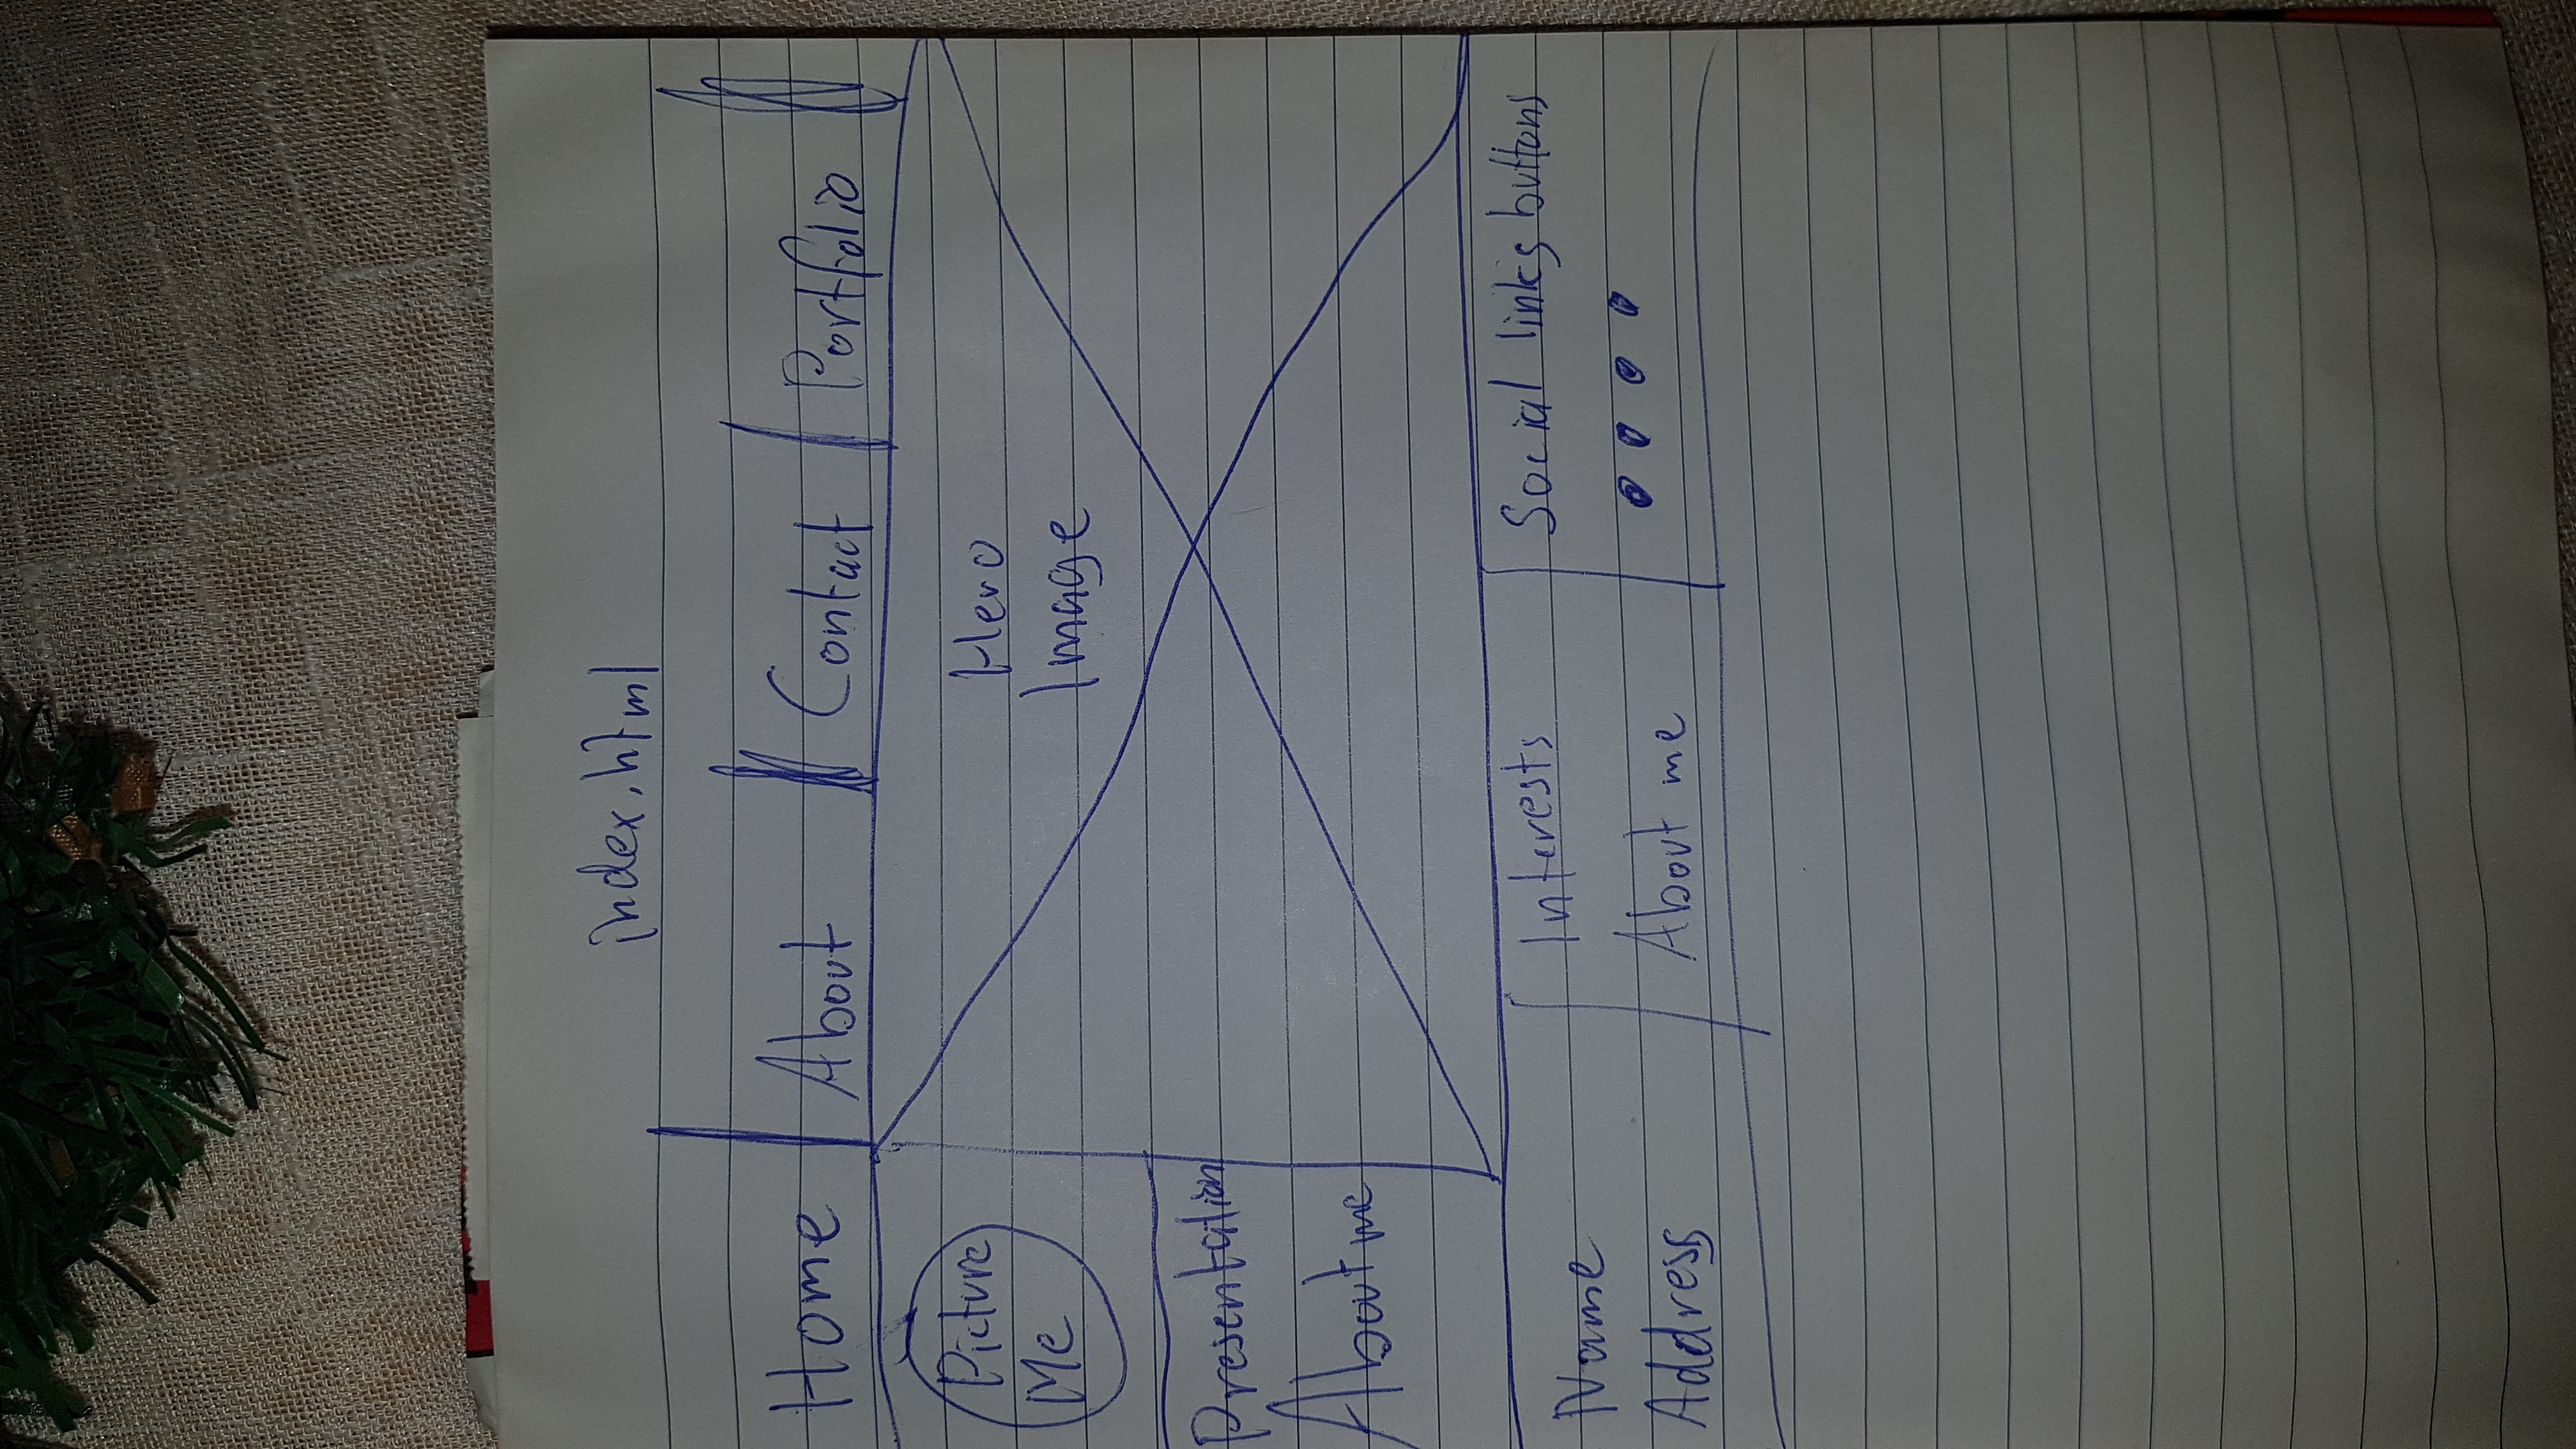 index.html
Home About Contact Portfolio
Picture
Me
Hero
Image
Presentation
About me
Name
Address
Interests
About me
Social links buttons